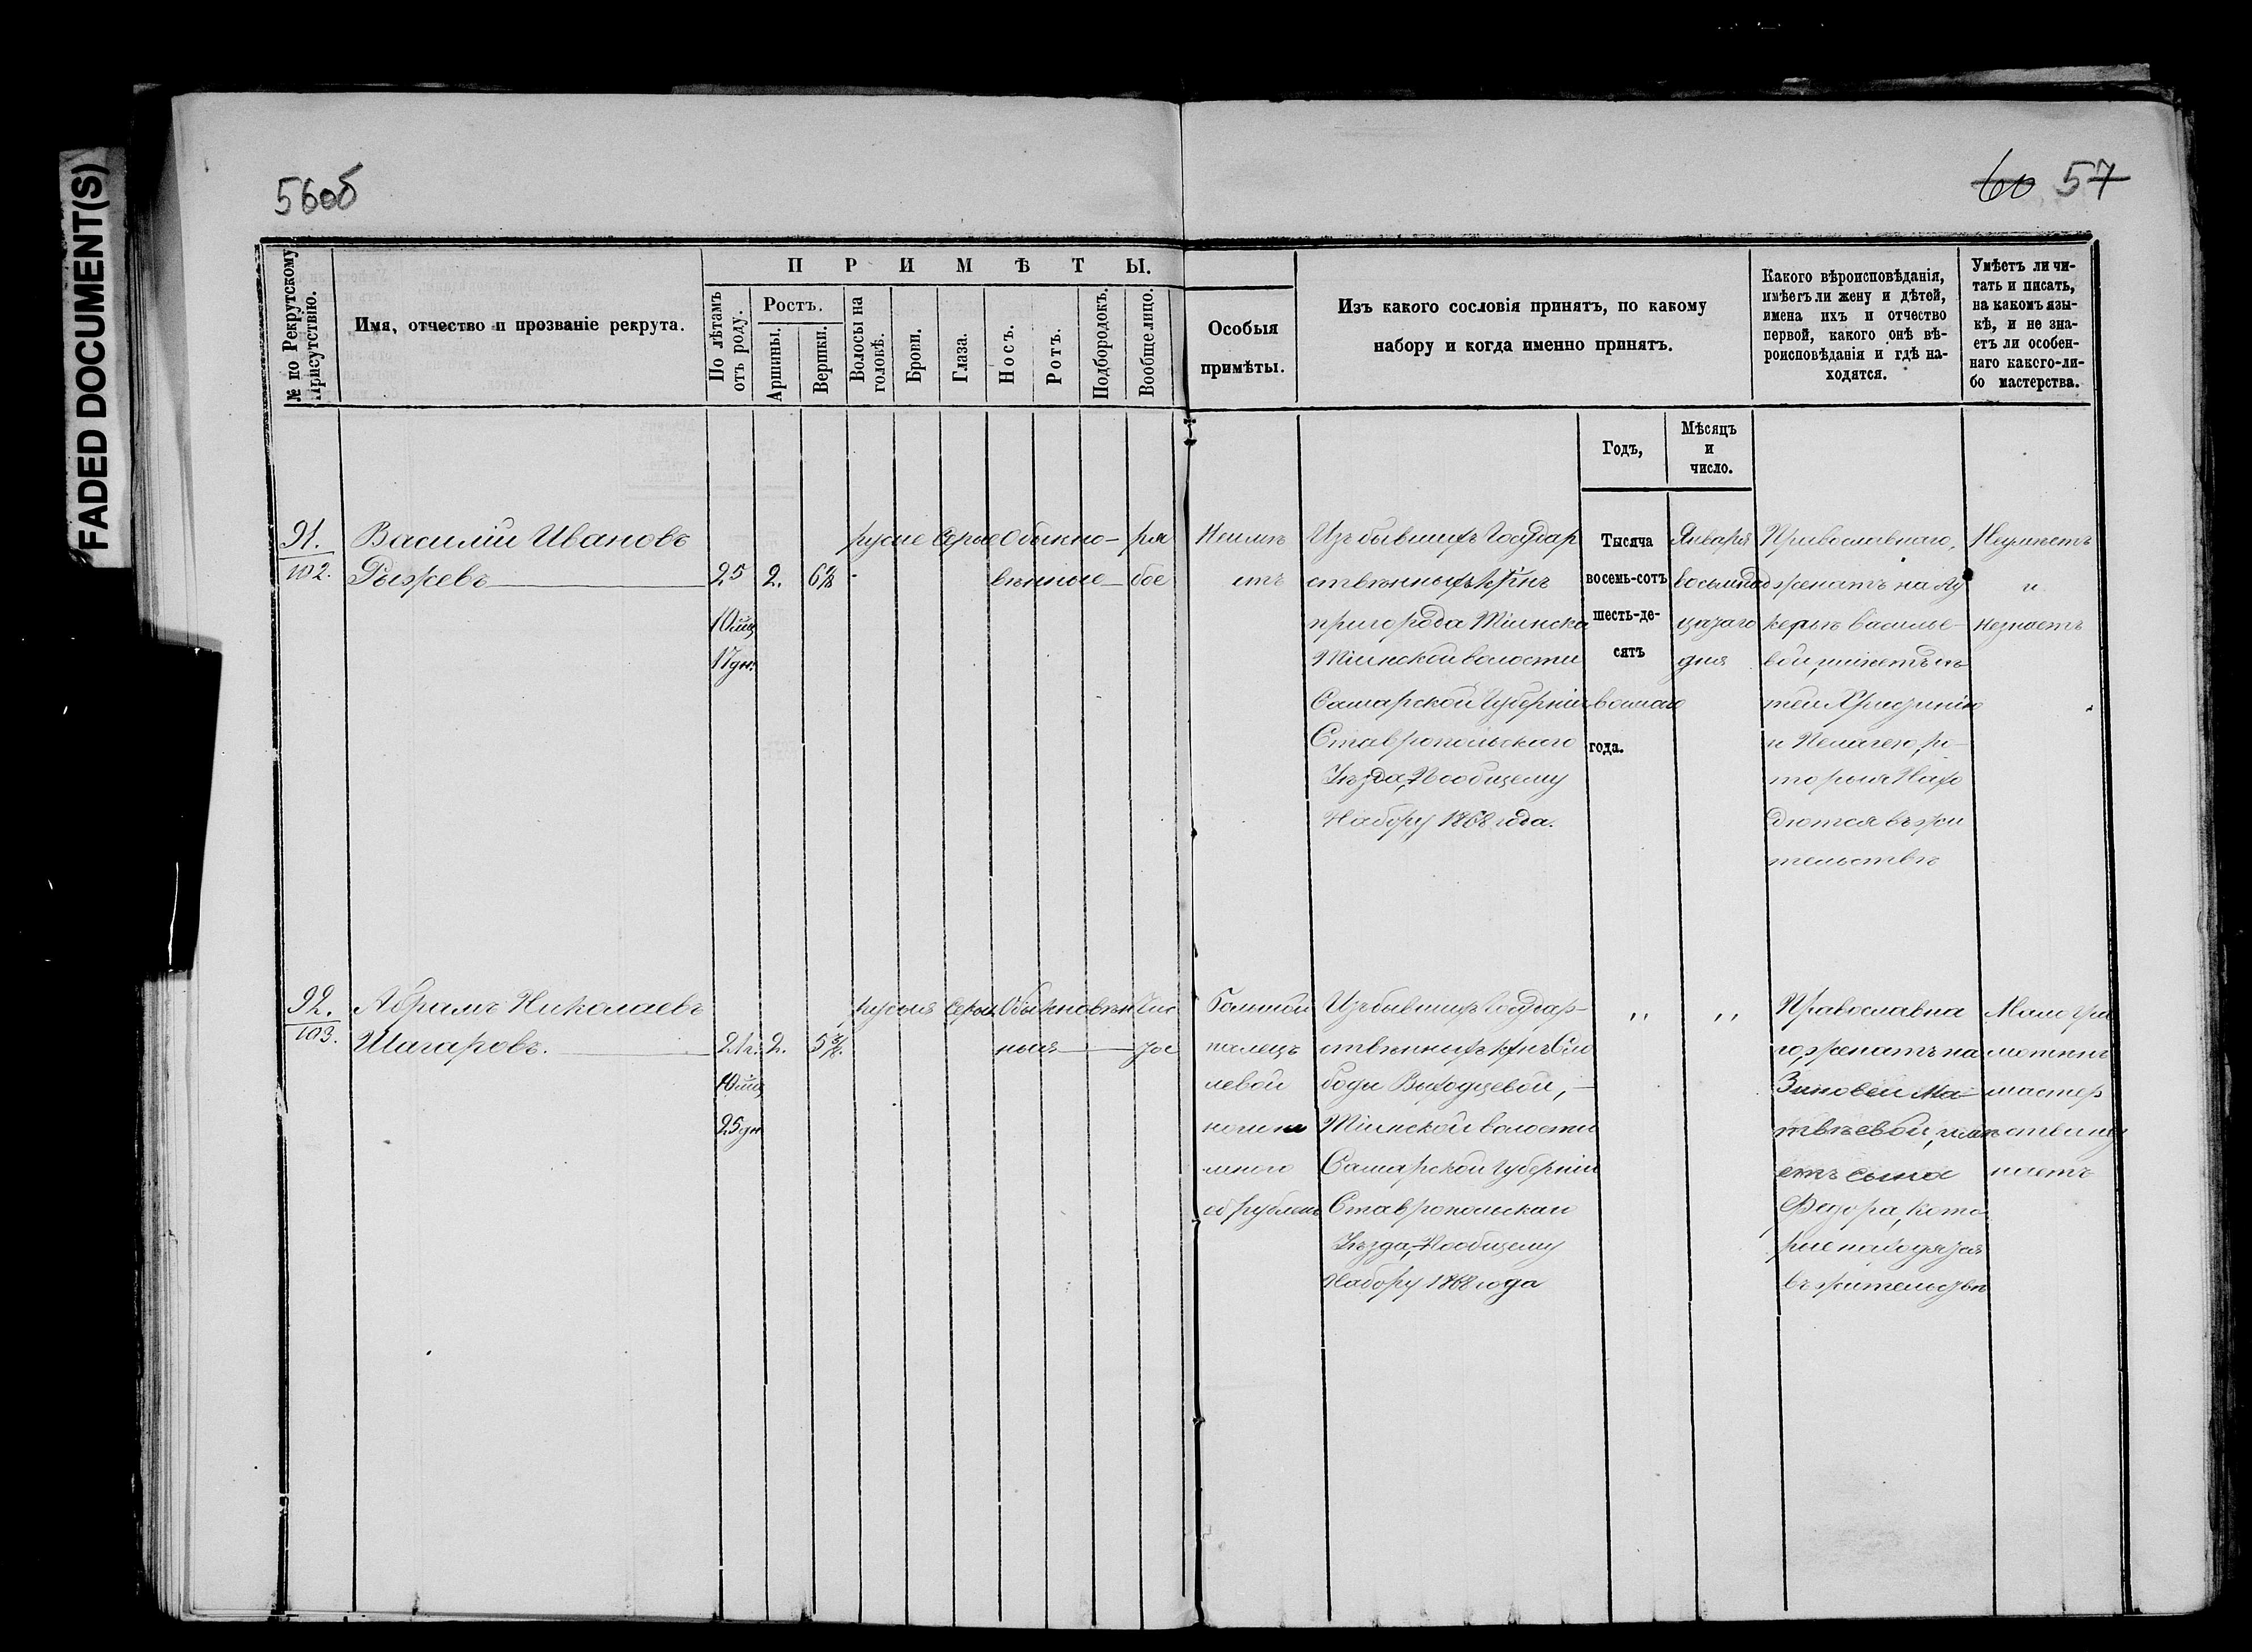 FADED DOCUMENT(S)
56об
60 57
№ по Рекрутскому Присутствію.
Имя, отчество и прозваніе рекрута.
ПРИМѢТЫ.
По лѣтамъ отъ роду.
Ростъ.
Аршины.
Вершки.
Волосы на головѣ.
Брови.
Глаза.
Носъ.
Ротъ.
Подбородокъ.
Вообще лицо.
Особыя
примѣты.
Изъ какого сословія принятъ, по какому
набору и когда именно принятъ.
Годъ,
Мѣсяцъ
и
число.
Какого вѣроисповѣданія,
имѣетъ ли жену и дѣтей,
имена ихъ и отчество
первой, какого онѣ вѣ-
роисповѣданія и гдѣ на-
ходятся.
Умѣетъ ли чи-
тать и писать,
на какомъ язы-
кѣ, и не зна-
етъ ли особен-
наго какого-ли-
бо мастерства.
91.
102.
Василій Ивановъ
Рыжевъ
25
10 мц
17 дн.
2.
6 1/8
русые
Серые
Обыкно-
венные
ря
бое
Неимѣ
етъ
Изъ бывшихъ Государ
ственныхъ Кр̃нъ
пригорода Тіинска
Тіинской волости
Самарской Губерніи
Ставропольскаго
Уѣзда, По общему
Набору 1868 года.
Тысяча
восемь-сотъ
шесть-де-
сятъ
восмаго
года.
Января
восьмнад
цатаго
дня
Православнаго,
женатъ на Лу
керьѣ Василье-
вой, имѣетъ дѣ
тей Христинію
и Пелагею, ко-
торыя Нахо
дются въ жи
тельствѣ
Неумѣетъ
и
незнаетъ
92.
103.
Абрамъ Николаевъ
Шагаровъ.
21 г.
10 мц
25 дн
2.
5 3/8.
русыя
Серые
Обыкновен
ныя
Чис
тое
Большой
палецъ
левой
ноги не
много
обрубленъ
Изъ бывшихъ Государ-
ственныхъ Кр̃нъ Сло
боды Выходцевой,
Тіинской волости
Самарской Губерніи
Ставропольскаго
Уѣзда, По общему
Набору 1868 года
,,
,,
Православна
го, женатъ на
Зиновеи Ма-
твѣевой, имѣ
етъ сына
Федора, кото
рые находятся
въ жительствѣ
Мало гра
мотенъ
мастер
ства не
знаетъ